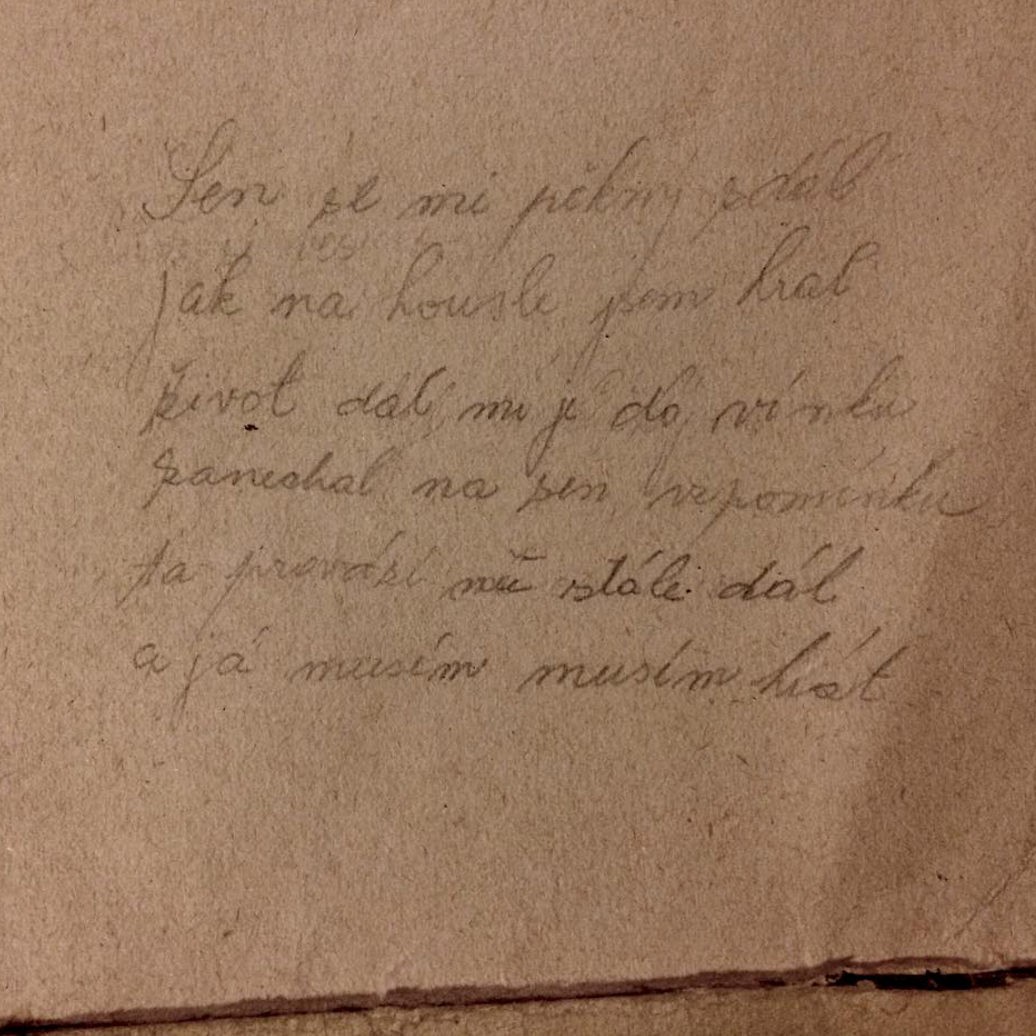 Sen se mi pěkný zdál
jak na housle jsem hrál
život dál mi je do vínku
zanechal na sen vzpomínku
ta provází mě stále dál
a já musím musím hrát